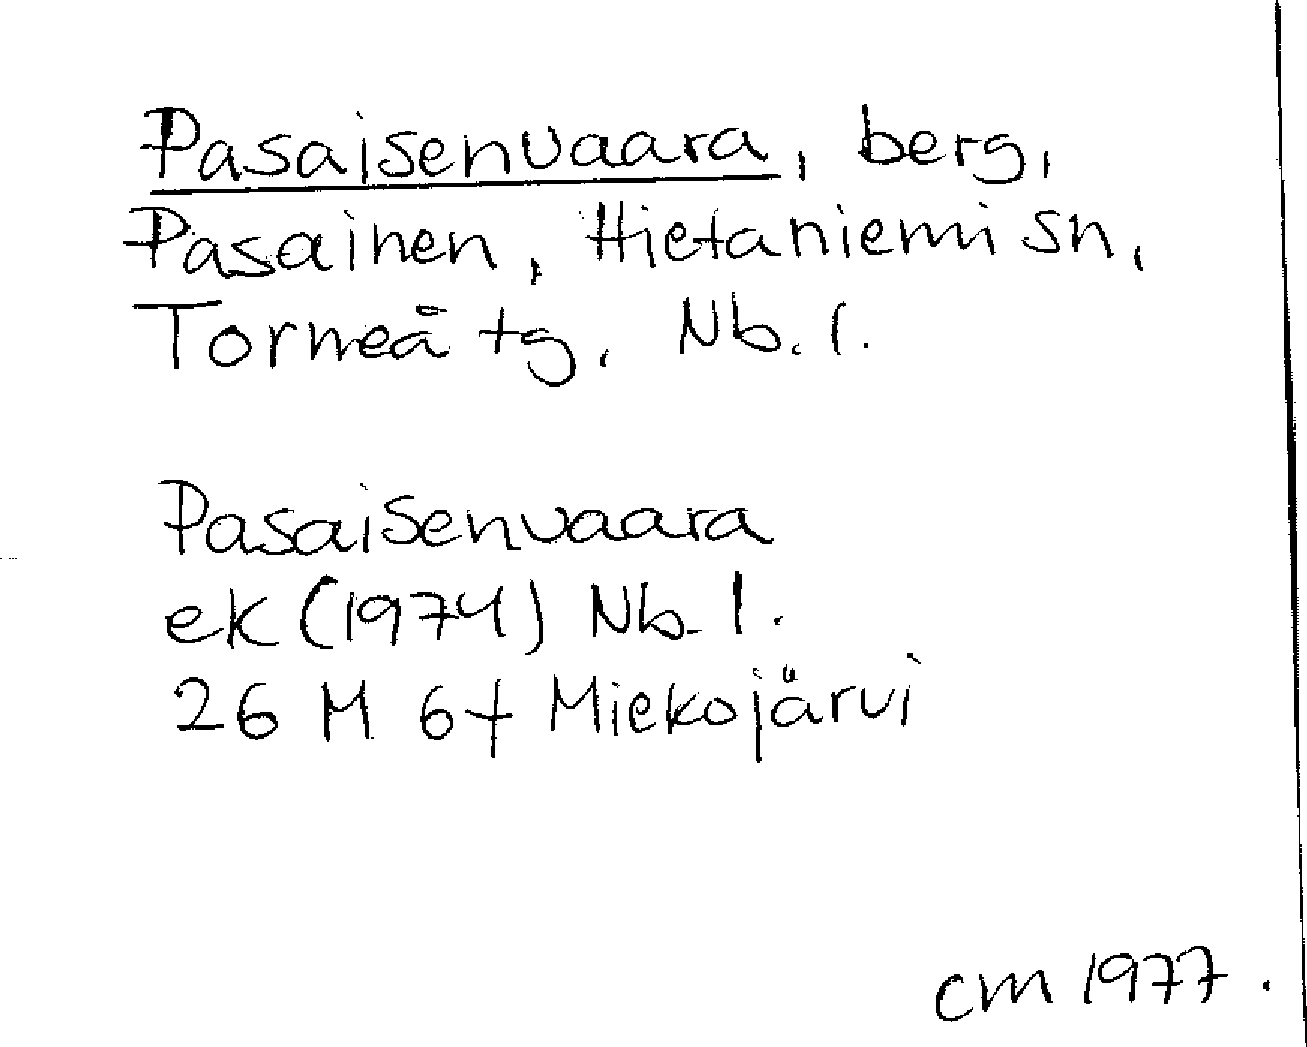 Pasaisenvaara, berg,
Pasainen, Hietaniemi sn,
Torneå tg. Nb. l.
Pasaisenvaara
ek (1974) Nb. l.
26 M 6f Miekojärvi
cm 1977.